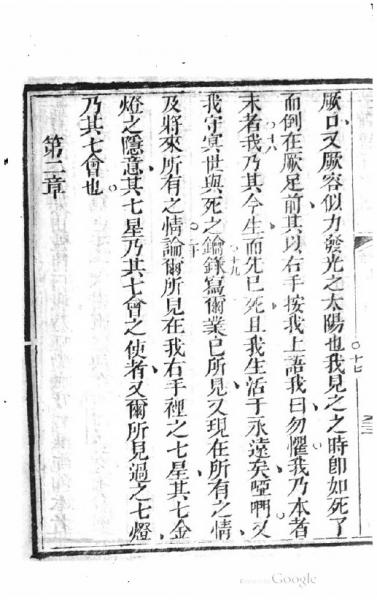 厥口又厥容似力發光之太陽也我見之之時卽如死了
○十七
而倒在厥足前其以右手按我上語我曰勿懼我乃本者
○十八
末者我乃其今生而先已死且我生活于永遠矣啞啊又
我守冥世與死之鑰
○十九
錄寫爾業已所見又現在所有之情
及將來所有之情
○二十
論爾所見在我右手裡之七星其七金
燈之隱意其七星乃其七會之使者又爾所見過之七燈
乃其七會也
第二章
Google